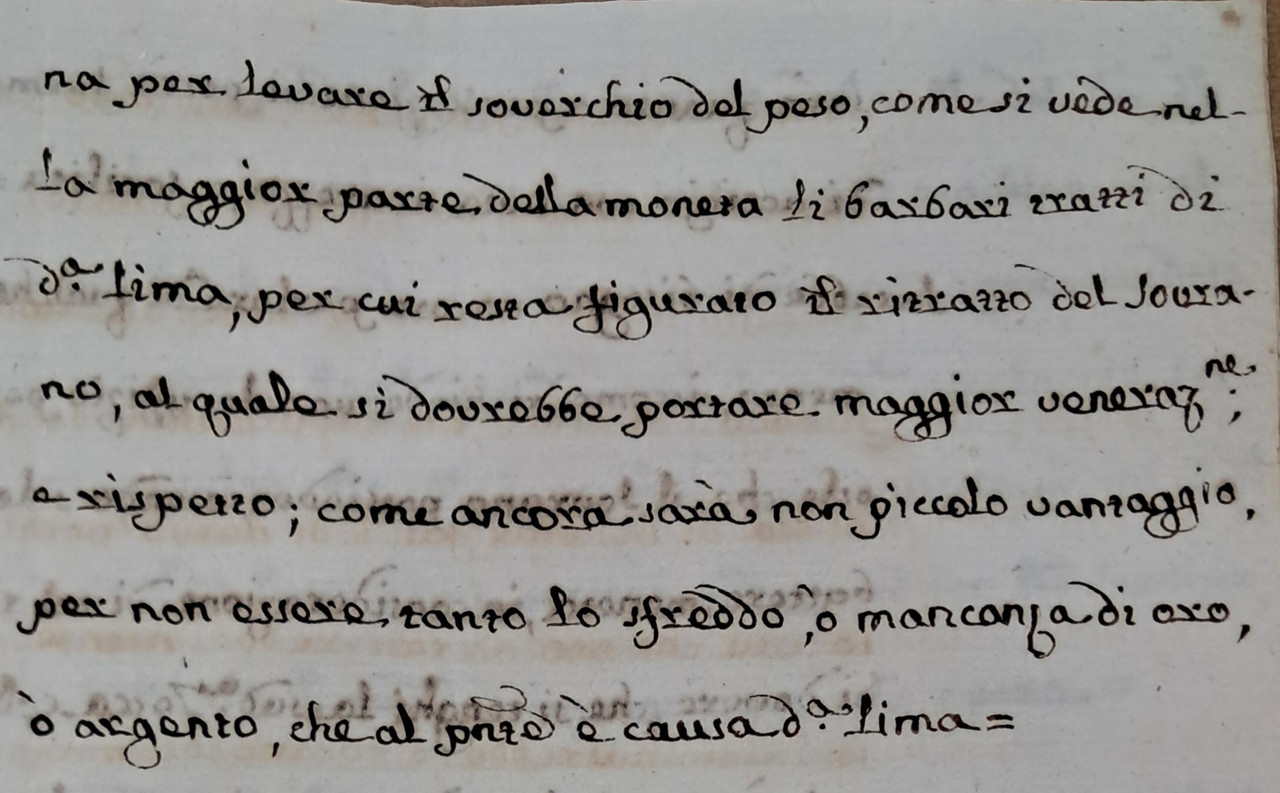 na per levare il soverchio del peso, come si vede nel-
la maggior parte della moneta li barbari tratti di
d.ª lima, per cui resta figurato il ritratto del Sovra-
no, al quale si dovrebbe portare maggior veneraz.ne;
e rispetto; come ancora sarà non piccolo vantaggio,
per non essere tanto lo sfreddo, ò mancanza di oro,
ò argento, che al pnte è causa d.ª lima=